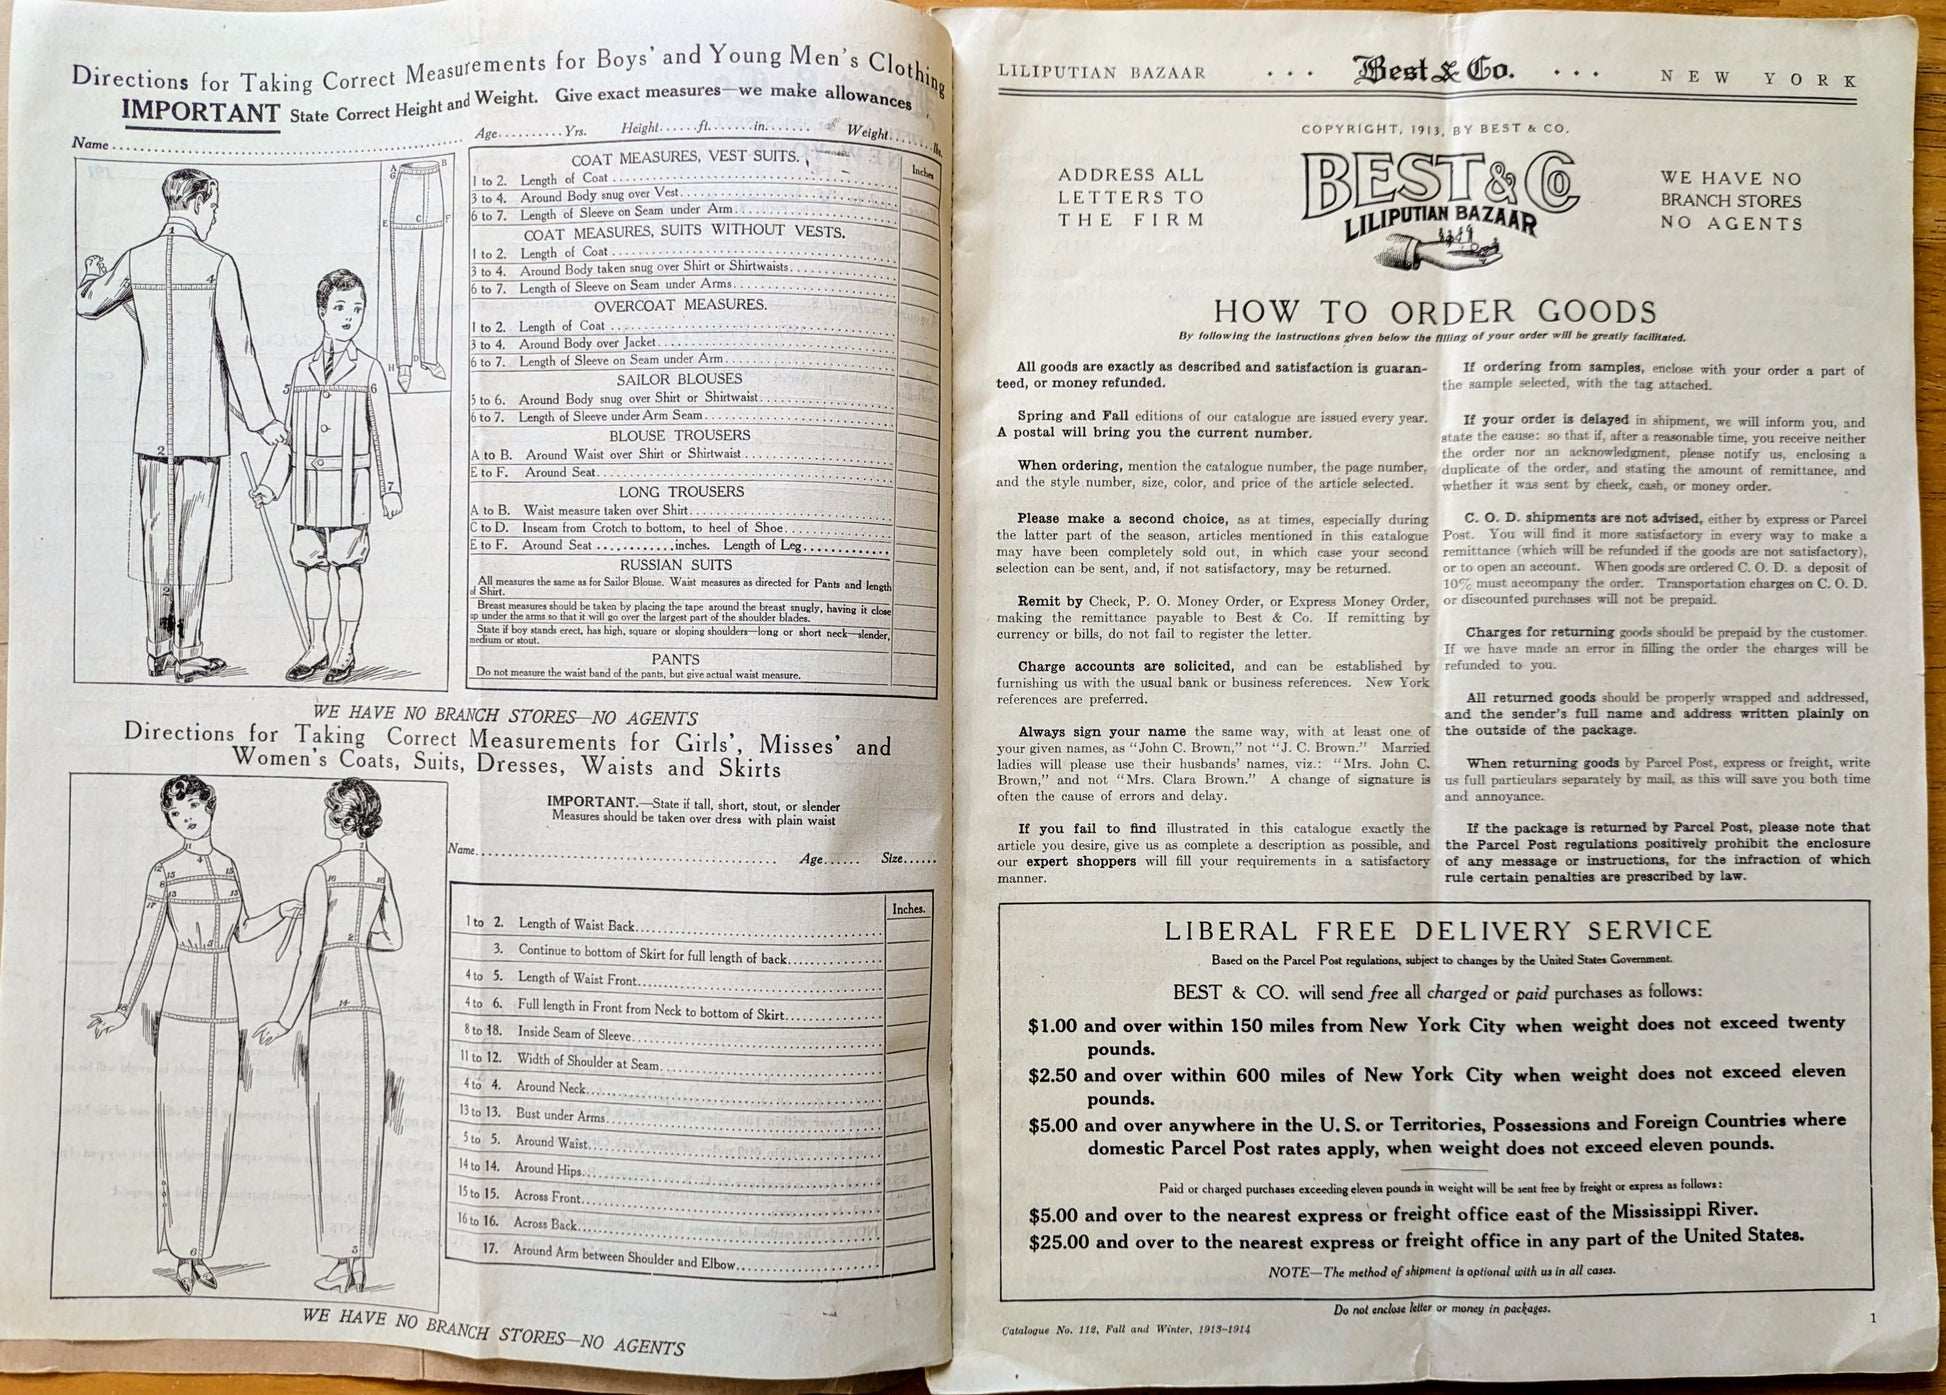 Directions for Taking Correct Measurements for Boys' and Young Men's Clothing
IMPORTANT State Correct Height and Weight. Give exact measures—we make allowances
Name
Age.......... Yrs. Height......ft.......in....... Weight.......lbs.
Inches
COAT MEASURES, VEST SUITS.
1 to 2. Length of Coat
3 to 4. Around Body snug over Vest
6 to 7. Length of Sleeve on Seam under Arm
COAT MEASURES, SUITS WITHOUT VESTS.
1 to 2. Length of Coat
3 to 4. Around Body taken snug over Shirt or Shirtwaists
6 to 7. Length of Sleeve on Seam under Arms
OVERCOAT MEASURES.
1 to 2. Length of Coat
3 to 4. Around Body over Jacket
6 to 7. Length of Sleeve on Seam under Arm
SAILOR BLOUSES
5 to 6. Around Body snug over Shirt or Shirtwaist
6 to 7. Length of Sleeve under Arm Seam
BLOUSE TROUSERS
A to B. Around Waist over Shirt or Shirtwaist
E to F. Around Seat
LONG TROUSERS
A to B. Waist measure taken over Shirt
C to D. Inseam from Crotch to bottom, to heel of Shoe
E to F. Around Seat ............inches. Length of Leg
RUSSIAN SUITS
All measures the same as for Sailor Blouse. Waist measures as directed for Pants and length
of Shirt.
Breast measures should be taken by placing the tape around the breast snugly, having it close
up under the arms so that it will go over the largest part of the shoulder blades.
State if boy stands erect, has high, square or sloping shoulders—long or short neck—slender,
medium or stout.
PANTS
Do not measure the waist band of the pants, but give actual waist measure.
WE HAVE NO BRANCH STORES—NO AGENTS
Directions for Taking Correct Measurements for Girls', Misses' and
Women's Coats, Suits, Dresses, Waists and Skirts
IMPORTANT.—State if tall, short, stout, or slender
Measures should be taken over dress with plain waist
Name
Age...... Size......
Inches.
1 to 2. Length of Waist Back
3. Continue to bottom of Skirt for full length of back
4 to 5. Length of Waist Front
4 to 6. Full length in Front from Neck to bottom of Skirt
8 to 18. Inside Seam of Sleeve
11 to 12. Width of Shoulder at Seam
4 to 4. Around Neck
13 to 13. Bust under Arms
5 to 5. Around Waist
14 to 14. Around Hips
15 to 15. Across Front
16 to 16. Across Back
17. Around Arm between Shoulder and Elbow
WE HAVE NO BRANCH STORES—NO AGENTS
LILIPUTIAN BAZAAR ... Best & Co. ... NEW YORK
COPYRIGHT, 1913, BY BEST & CO.
ADDRESS ALL
LETTERS TO
THE FIRM
BEST & CO
LILIPUTIAN BAZAAR
WE HAVE NO
BRANCH STORES
NO AGENTS
HOW TO ORDER GOODS
By following the instructions given below the filling of your order will be greatly facilitated.
All goods are exactly as described and satisfaction is guaran-
teed, or money refunded.
Spring and Fall editions of our catalogue are issued every year.
A postal will bring you the current number.
When ordering, mention the catalogue number, the page number,
and the style number, size, color, and price of the article selected.
Please make a second choice, as at times, especially during
the latter part of the season, articles mentioned in this catalogue
may have been completely sold out, in which case your second
selection can be sent, and, if not satisfactory, may be returned.
Remit by Check, P. O. Money Order, or Express Money Order,
making the remittance payable to Best & Co. If remitting by
currency or bills, do not fail to register the letter.
Charge accounts are solicited, and can be established by
furnishing us with the usual bank or business references. New York
references are preferred.
Always sign your name the same way, with at least one of
your given names, as "John C. Brown," not "J. C. Brown." Married
ladies will please use their husbands' names, viz.: "Mrs. John C.
Brown," and not "Mrs. Clara Brown." A change of signature is
often the cause of errors and delay.
If you fail to find illustrated in this catalogue exactly the
article you desire, give us as complete a description as possible, and
our expert shoppers will fill your requirements in a satisfactory
manner.
If ordering from samples, enclose with your order a part of
the sample selected, with the tag attached.
If your order is delayed in shipment, we will inform you, and
state the cause: so that if, after a reasonable time, you receive neither
the order nor an acknowledgment, please notify us, enclosing a
duplicate of the order, and stating the amount of remittance, and
whether it was sent by check, cash, or money order.
C. O. D. shipments are not advised, either by express or Parcel
Post. You will find it more satisfactory in every way to make a
remittance (which will be refunded if the goods are not satisfactory),
or to open an account. When goods are ordered C. O. D. a deposit of
10% must accompany the order. Transportation charges on C. O. D.
or discounted purchases will not be prepaid.
Charges for returning goods should be prepaid by the customer.
If we have made an error in filling the order the charges will be
refunded to you.
All returned goods should be properly wrapped and addressed,
and the sender's full name and address written plainly on
the outside of the package.
When returning goods by Parcel Post, express or freight, write
us full particulars separately by mail, as this will save you both time
and annoyance.
If the package is returned by Parcel Post, please note that
the Parcel Post regulations positively prohibit the enclosure
of any message or instructions, for the infraction of which
rule certain penalties are prescribed by law.
LIBERAL FREE DELIVERY SERVICE
Based on the Parcel Post regulations, subject to changes by the United States Government.
BEST & CO. will send free all charged or paid purchases as follows:
$1.00 and over within 150 miles from New York City when weight does not exceed twenty
pounds.
$2.50 and over within 600 miles of New York City when weight does not exceed eleven
pounds.
$5.00 and over anywhere in the U. S. or Territories, Possessions and Foreign Countries where
domestic Parcel Post rates apply, when weight does not exceed eleven pounds.
Paid or charged purchases exceeding eleven pounds in weight will be sent free by freight or express as follows:
$5.00 and over to the nearest express or freight office east of the Mississippi River.
$25.00 and over to the nearest express or freight office in any part of the United States.
NOTE—The method of shipment is optional with us in all cases.
Do not enclose letter or money in packages.
Catalogue No. 112, Fall and Winter, 1913-1914
1